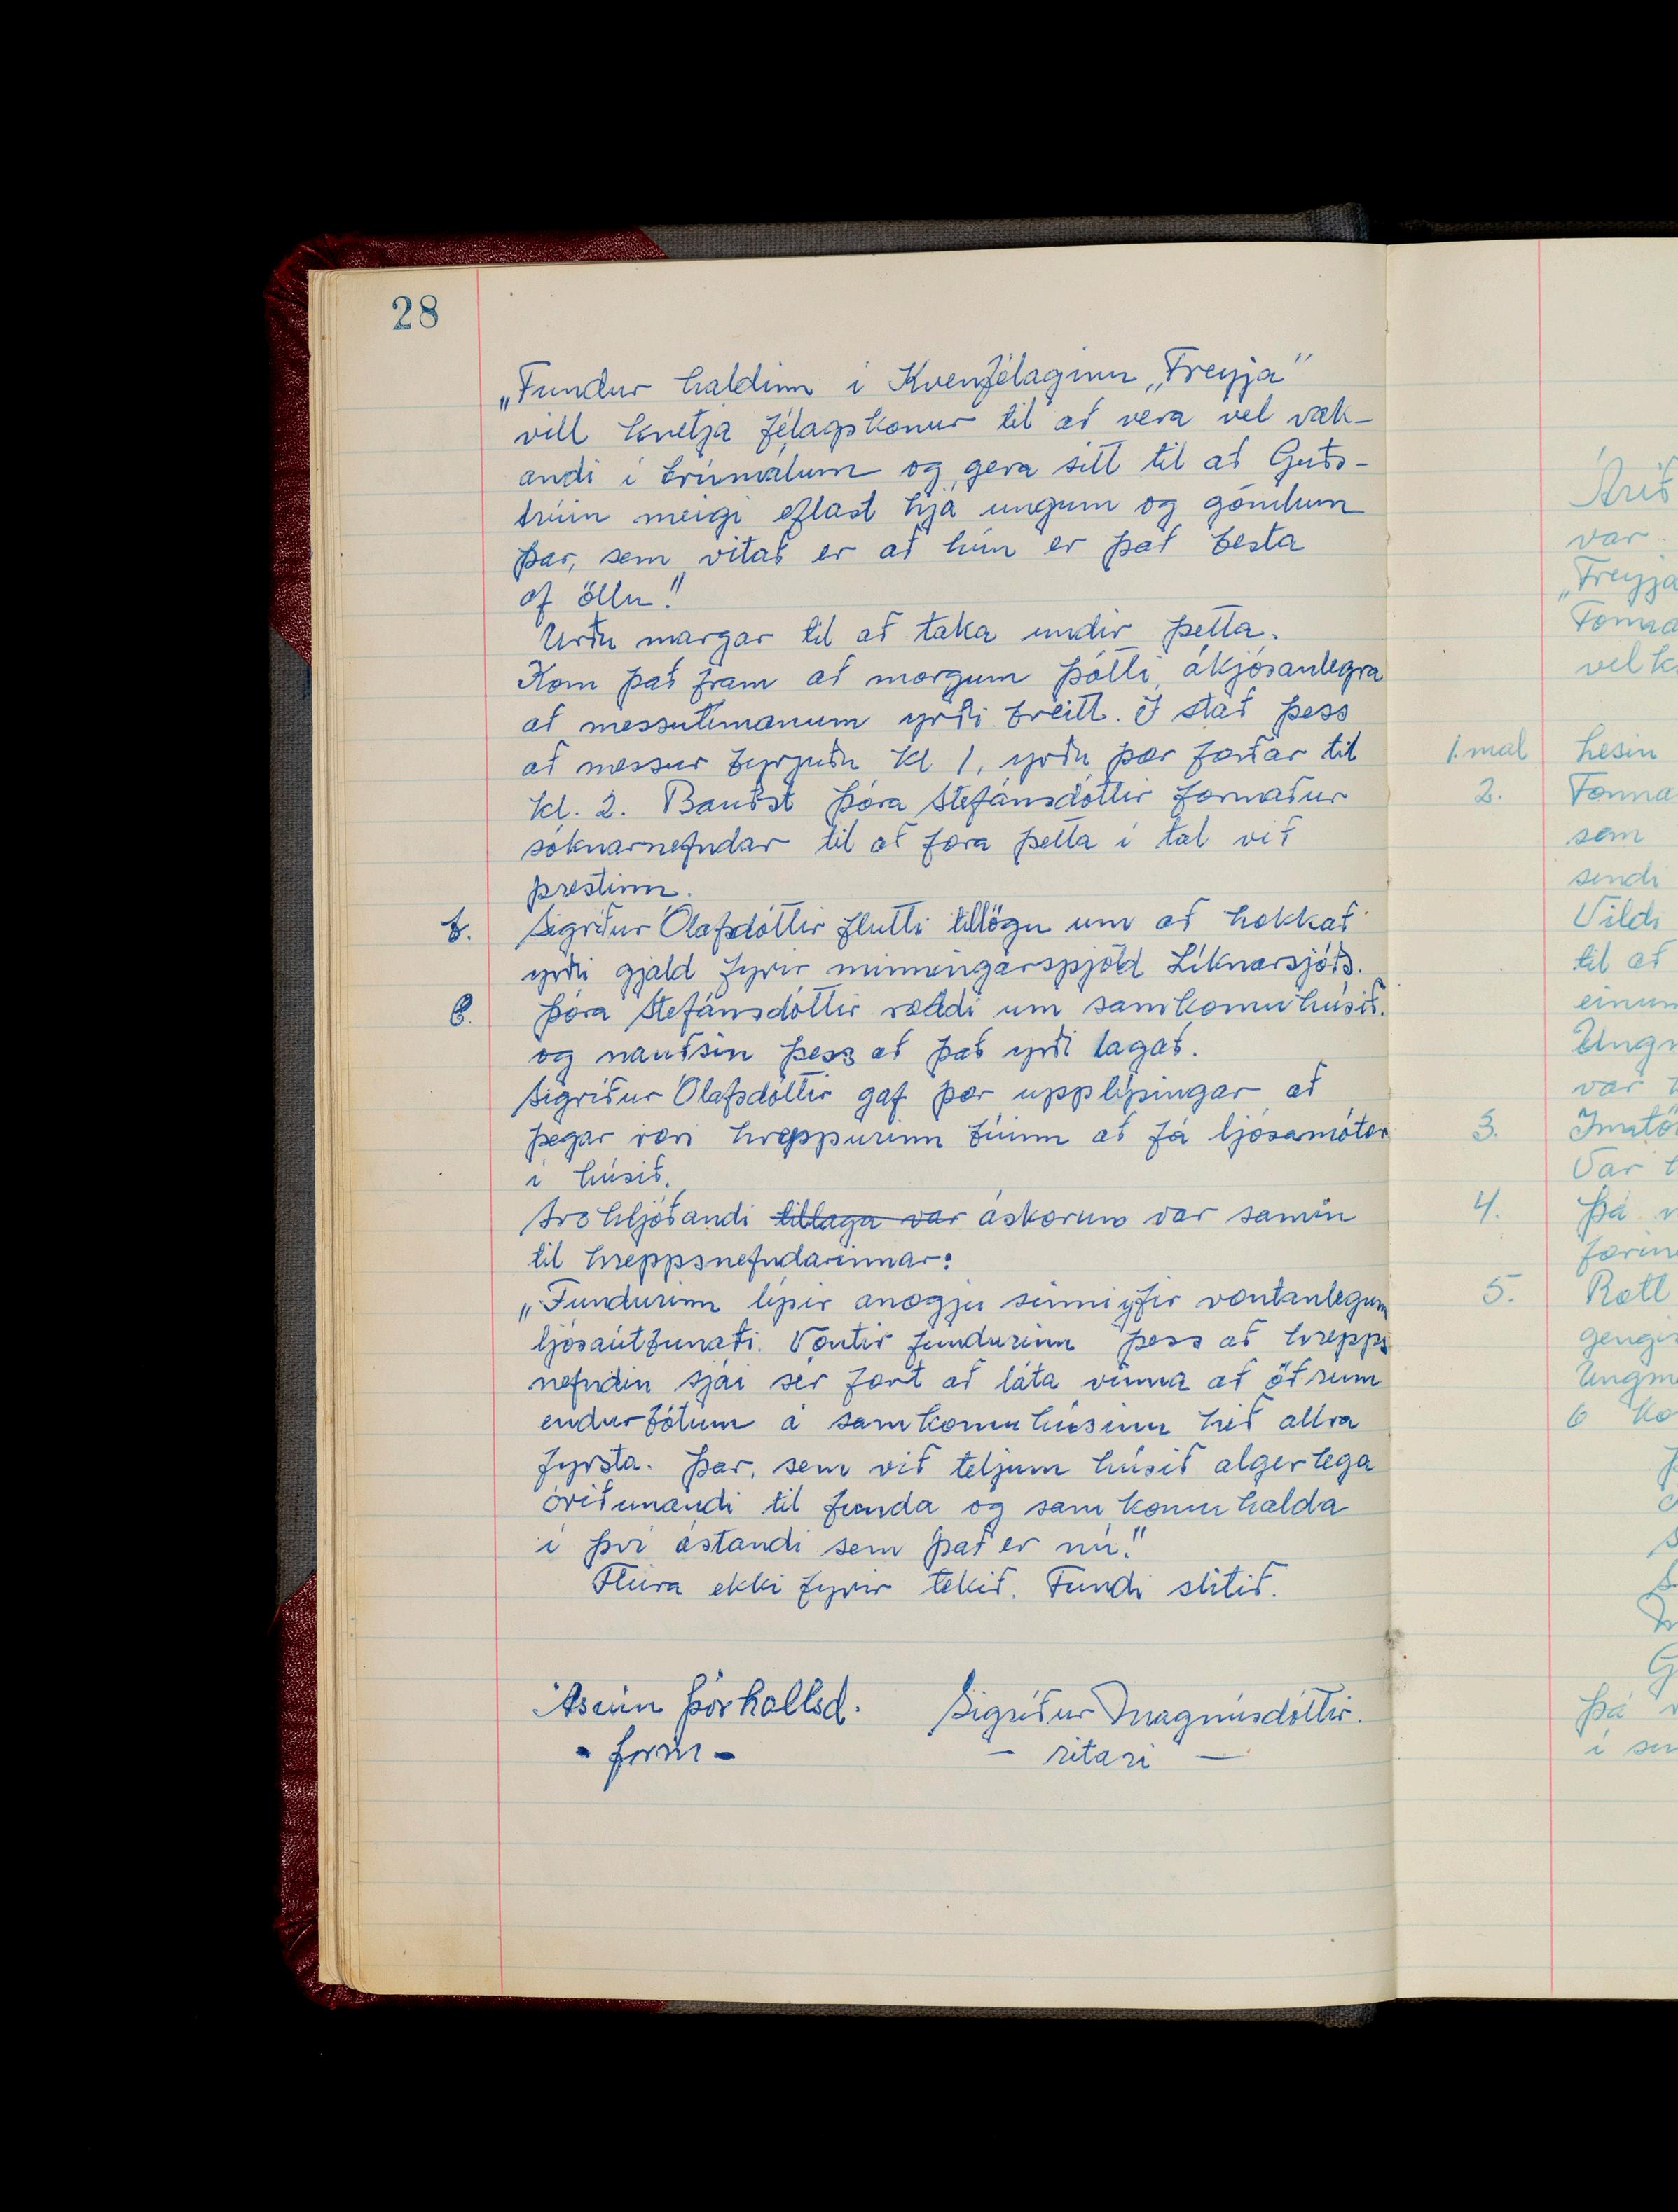 28
„Fundur haldinn í Kvenfélaginu „Freyja"
vill hvetja félagskonur til að vera vel vak-
andi í trúmálum og gera sitt til að Guðs-
trúin meigi eflast hjá ungum og gömlum
þar, sem vitað er að hún er það besta
af öllu."
Urðu margar til að taka undir þetta.
Kom það fram að mörgum þótti ákjósanlegra
að messutímanum yrði breitt. Í stað þess
að messur byrjuðu kl 1, yrðu þær færðar til
kl. 2. Bauðst Þóra Stefánsdóttir formaður
sóknarnefndar til að færa þetta í tal við
prestinn.
b. Sigríður Ólafsdóttir flutti tillögu um að hækkað
yrði gjald fyrir minningarspjöld Líknarsjóðs.
C. Þóra Stefánsdóttir ræddi um samkomuhúsið.
og nauðsin þess að það yrði lagað.
Sigríður Ólafsdóttir gaf þær upplýsingar að
þegar væri hreppurinn búinn að fá ljósamótor
í húsið.
Svo hljóðandi tillaga var áskorun var samin
til hreppsnefndarinnar:
„Fundurinn lýsir ánægju sinni yfir væntanlegum
ljósaútbúnaði. Væntir fundurinn þess að hrepps
nefndin sjái sér fært að láta vinna að öðrum
endurbótum á samkomuhúsinu hið allra
fyrsta. Þar, sem við teljum húsið algerlega
óviðunandi til funda og samkomu halda
í því ástandi sem það er nú."
Fleira ekki fyrir tekið. Fundi slitið.
Ásrún Þórhallsd. Sigríður Magnúsdóttir.
- form - - ritari -
var
„Freyja
vel k
1. mál lesin
2.
sem
sendi
Vildi
til að
einum
Ung
var
3.
Var
4. Þá
5. Rætt
gengi
Ungm
6
Þá
í